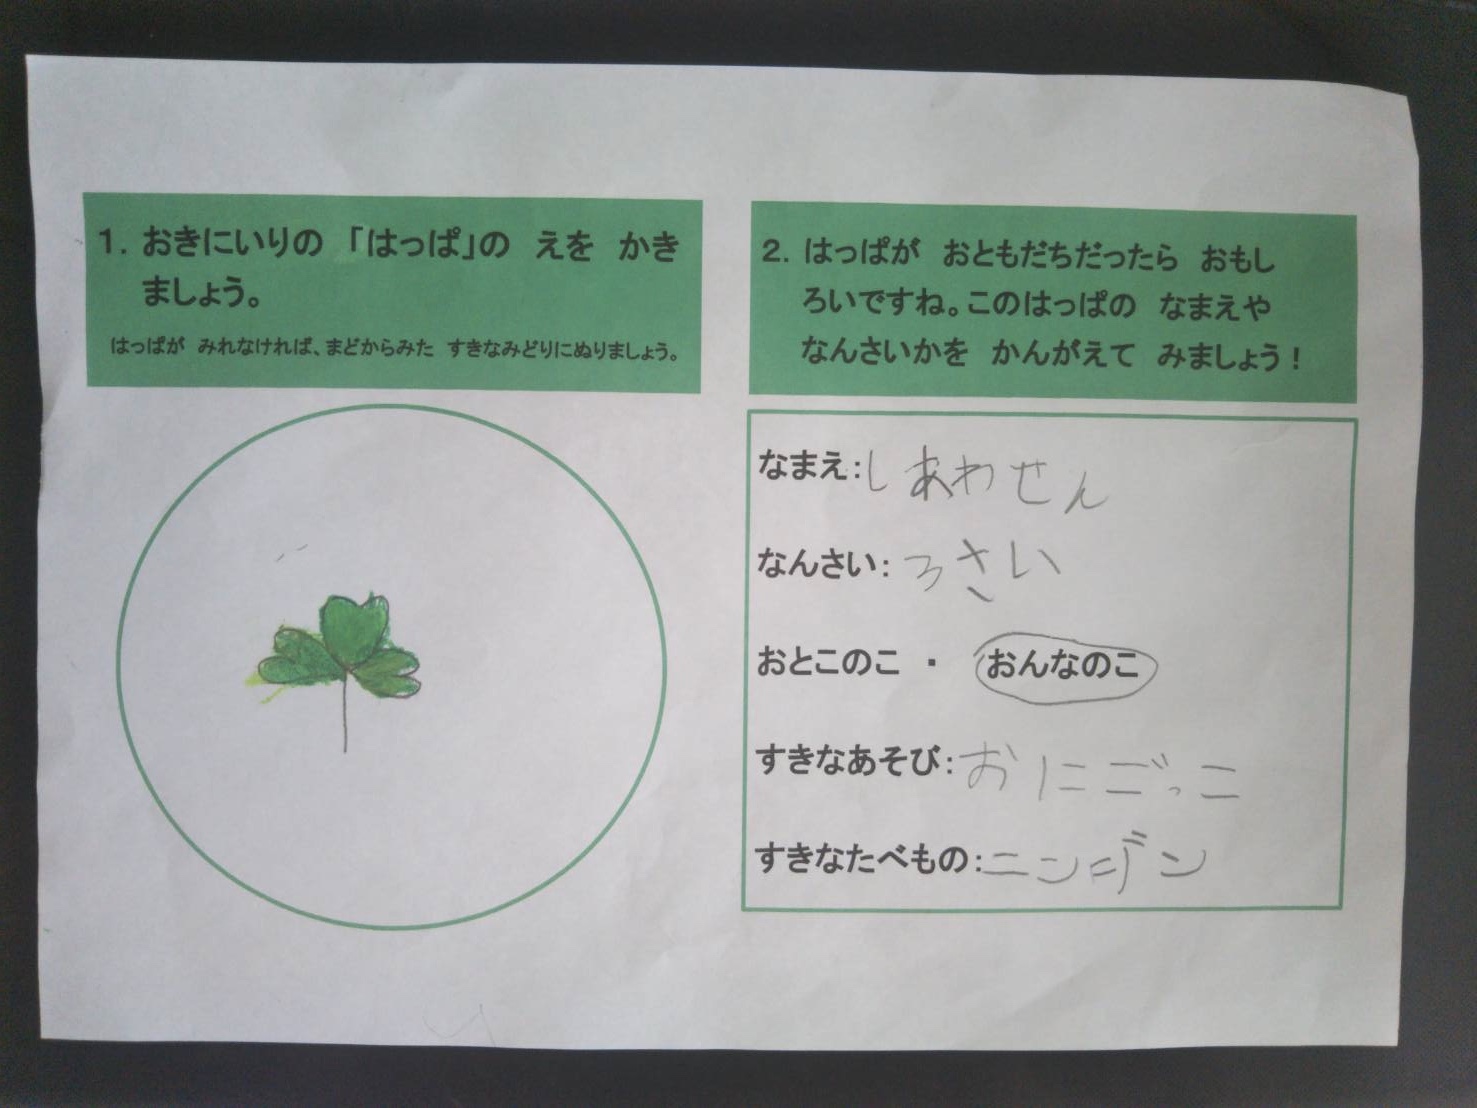 1. おきにいりの 「はっぱ」の えを かき
ましょう。
はっぱが みれなければ、まどからみた すきなみどりにぬりましょう。
2. はっぱが おともだちだったら おもし
ろいですね。このはっぱの なまえや
なんさいかを かんがえて みましょう！
なまえ：しあわせん
なんさい：3さい
おとこのこ ・ おんなのこ
すきなあそび：おにごっこ
すきなたべもの：ニンジン